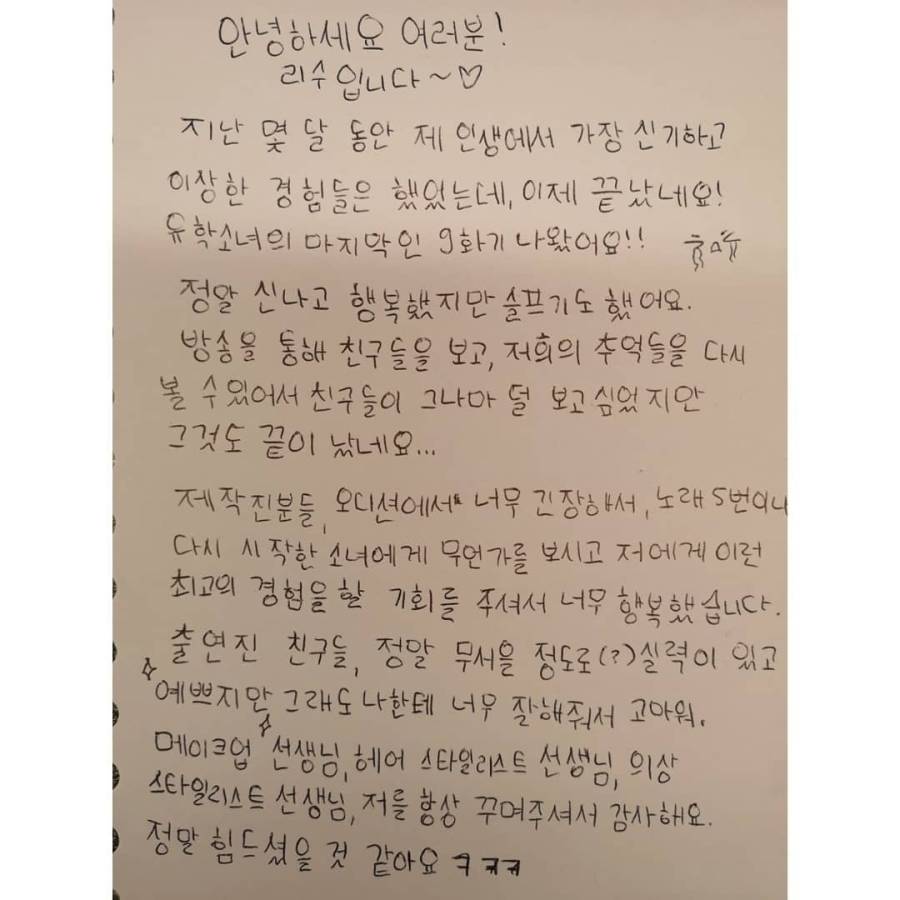 안녕하세요 여러분!
리수입니다~♡
지난 몇 달 동안 제 인생에서 가장 신기하고
이상한 경험들은 했었는데, 이제 끝났네요!
유학소녀의 마지막인 9화기 나왔어요!!
정말 신나고 행복했지만 슬프기도 했어요.
방송을 통해 친구들을 보고, 저희의 추억들을 다시
볼 수 있어서 친구들이 그나마 덜 보고 싶었지만
그것도 끝이 났네요...
제작진분들, 오디션에서 너무 긴장해서, 노래 5번이나
다시 시작한 소녀에게 무언가를 보시고 저에게 이런
최고의 경험을 할 기회를 주셔서 너무 행복했습니다.
출연진 친구들, 정말 무서울 정도로(?) 실력이 있고
예쁘지만 그래도 나한테 너무 잘해줘서 고마워.
메이크업 선생님, 헤어 스타일리스트 선생님, 의상
스타일리스트 선생님, 저를 항상 꾸며주셔서 감사해요.
정말 힘드셨을 것 같아요 ㅋㅋㅋ